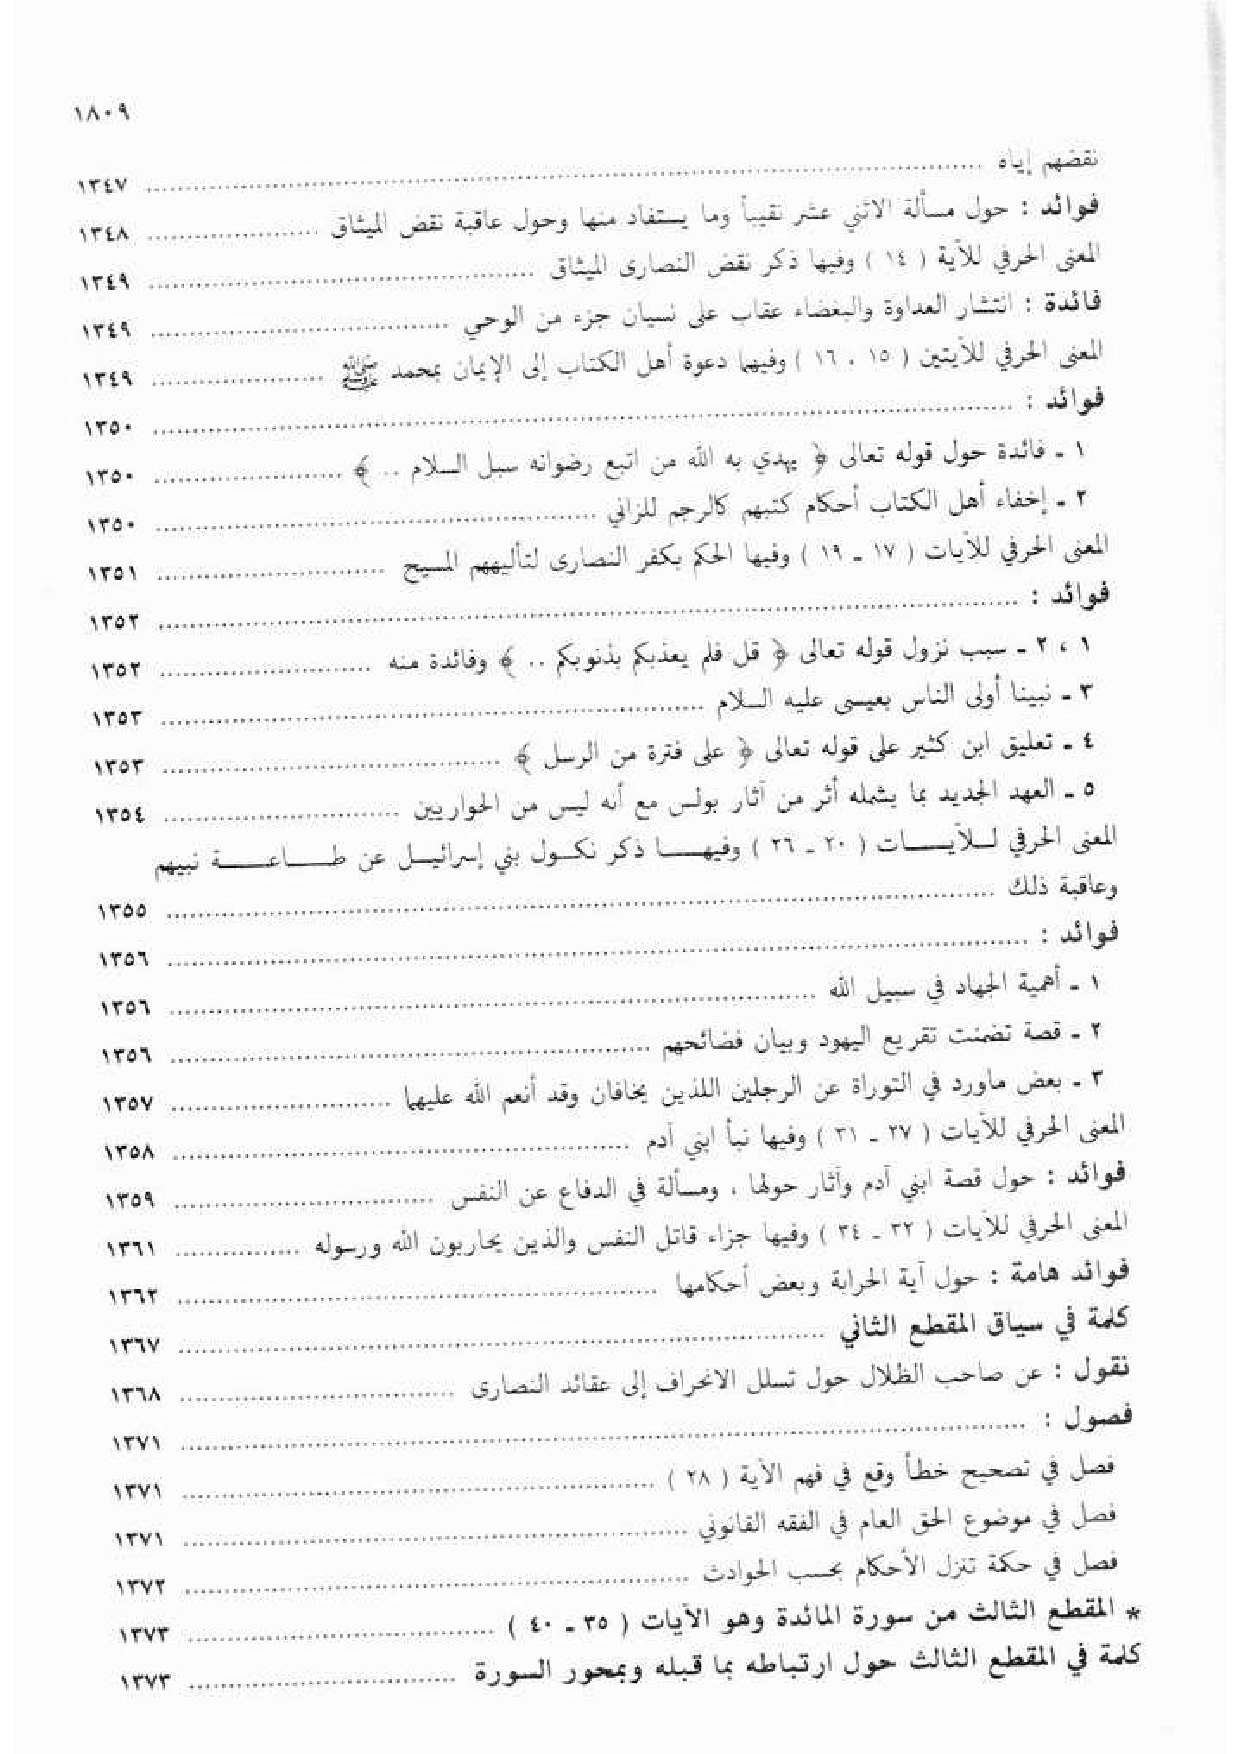 ١٨٠٩
نقضهم إياه ........ ١٣٤٧
فوائد : حول مسألة الاثني عشر نقيباً وما يستفاد منها وحول عاقبة نقض الميثاق ........ ١٣٤٨
المعنى الحرفي للآية ( ١٤ ) وفيها ذكر نقض النصارى الميثاق ........ ١٣٤٩
فائدة : انتشار العداوة والبغضاء عقاب على نسيان جزء من الوحي ........ ١٣٤٩
المعنى الحرفي للآيتين ( ١٥ ، ١٦ ) وفيهما دعوة أهل الكتاب إلى الإيمان بمحمد ﷺ ........ ١٣٤٩
فوائد : ........ ١٣٥٠
١ ـ فائدة حول قوله تعالى ﴿ يهدي به الله من اتبع رضوانه سبل السلام .. ﴾ ........ ١٣٥٠
٢ ـ إخفاء أهل الكتاب أحكام كتبهم كالرجم للزاني ........ ١٣٥٠
المعنى الحرفي للآيات ( ١٧ ـ ١٩ ) وفيها الحكم بكفر النصارى لتأليههم المسيح ........ ١٣٥١
فوائد : ........ ١٣٥٢
١ ، ٢ ـ سبب نزول قوله تعالى ﴿ قل فلم يعذبكم بذنوبكم .. ﴾ وفائدة منه ........ ١٣٥٢
٣ ـ نبينا أولى الناس بعيسى عليه السلام ........ ١٣٥٣
٤ ـ تعليق ابن كثير على قوله تعالى ﴿ على فترة من الرسل ﴾ ........ ١٣٥٣
٥ ـ العهد الجديد بما يشمله أثر من آثار بولس مع أنه ليس من الحواريين ........ ١٣٥٤
المعنى الحرفي للآيات ( ٢٠ ـ ٢٦ ) وفيها ذكر نكول بني إسرائيل عن طاعة نبيهم
وعاقبة ذلك ........ ١٣٥٥
فوائد : ........ ١٣٥٦
١ ـ أهمية الجهاد في سبيل الله ........ ١٣٥٦
٢ ـ قصة تضمنت تقريع اليهود وبيان فضائحهم ........ ١٣٥٦
٣ ـ بعض ماورد في التوراة عن الرجلين اللذين يخافان وقد أنعم الله عليهما ........ ١٣٥٧
المعنى الحرفي للآيات ( ٢٧ ـ ٣١ ) وفيها نبأ ابني آدم ........ ١٣٥٨
فوائد : حول قصة ابني آدم وآثار حولها ، ومسألة في الدفاع عن النفس ........ ١٣٥٩
المعنى الحرفي للآيات ( ٣٢ ـ ٣٤ ) وفيها جزاء قاتل النفس والذين يحاربون الله ورسوله ........ ١٣٦١
فوائد هامة : حول آية الحرابة وبعض أحكامها ........ ١٣٦٢
كلمة في سياق المقطع الثاني ........ ١٣٦٧
نقول : عن صاحب الظلال حول تسلل الانحراف إلى عقائد النصارى ........ ١٣٦٨
فصول : ........ ١٣٧١
فصل في تصحيح خطأ وقع في فهم الآية ( ٢٨ ) ........ ١٣٧١
فصل في موضوع الحق العام في الفقه القانوني ........ ١٣٧١
فصل في حكمة تنزل الأحكام بحسب الحوادث ........ ١٣٧٢
* المقطع الثالث من سورة المائدة وهو الآيات ( ٣٥ ـ ٤٠ ) ........ ١٣٧٣
كلمة في المقطع الثالث حول ارتباطه بما قبله وبمحور السورة ........ ١٣٧٣